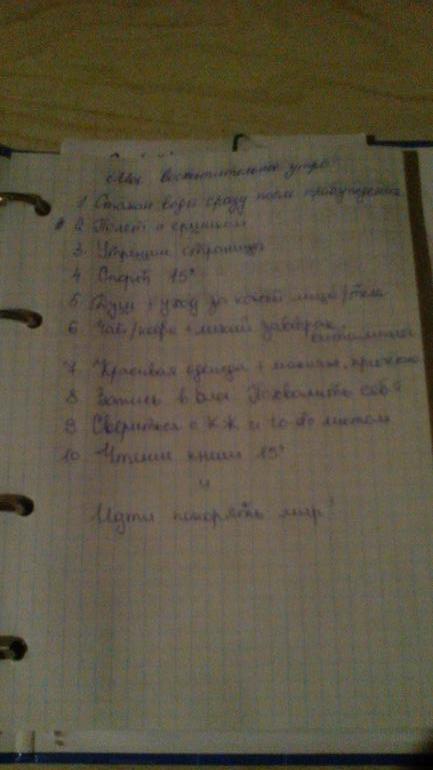 "Моё восхитительное утро"
1. Стакан воды сразу после пробуждения
2.
3. Утренние страницы
4. Спорт 15'
5. Душ + уход за кожей лица/тела
6. Чай/кофе + легкий завтрак, витамины
7. Красивая одежда + макияж, прическа
8. Запись в блог Похвалить себя
9. Свериться с КЖ и листом
10. Чтение книги 15'
и
Идти покорять мир!